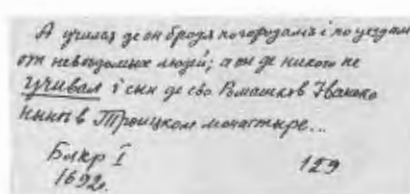 А училая де он бродя по городамъ і по уездам
от неведомых людей; а он де никого не
учивал і сын де ево Ромашков Іванко
ныне в Троицком монастыре...
Блкр I 129
1692.